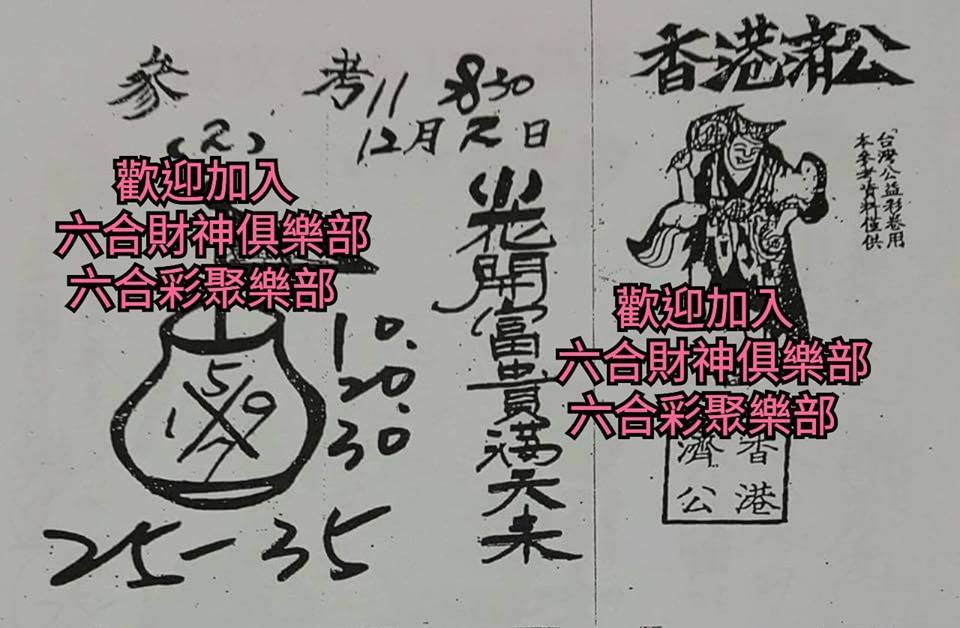 香港濟公
本參考資料僅供
台灣公益彩卷用
參考 11 30
12月 日
(2)
歡迎加入
六合財神俱樂部
六合彩聚樂部
花開富貴滿天未
10.
20.
30
5
1 9
7
25-35
歡迎加入
六合財神俱樂部
六合彩聚樂部
香港
濟公